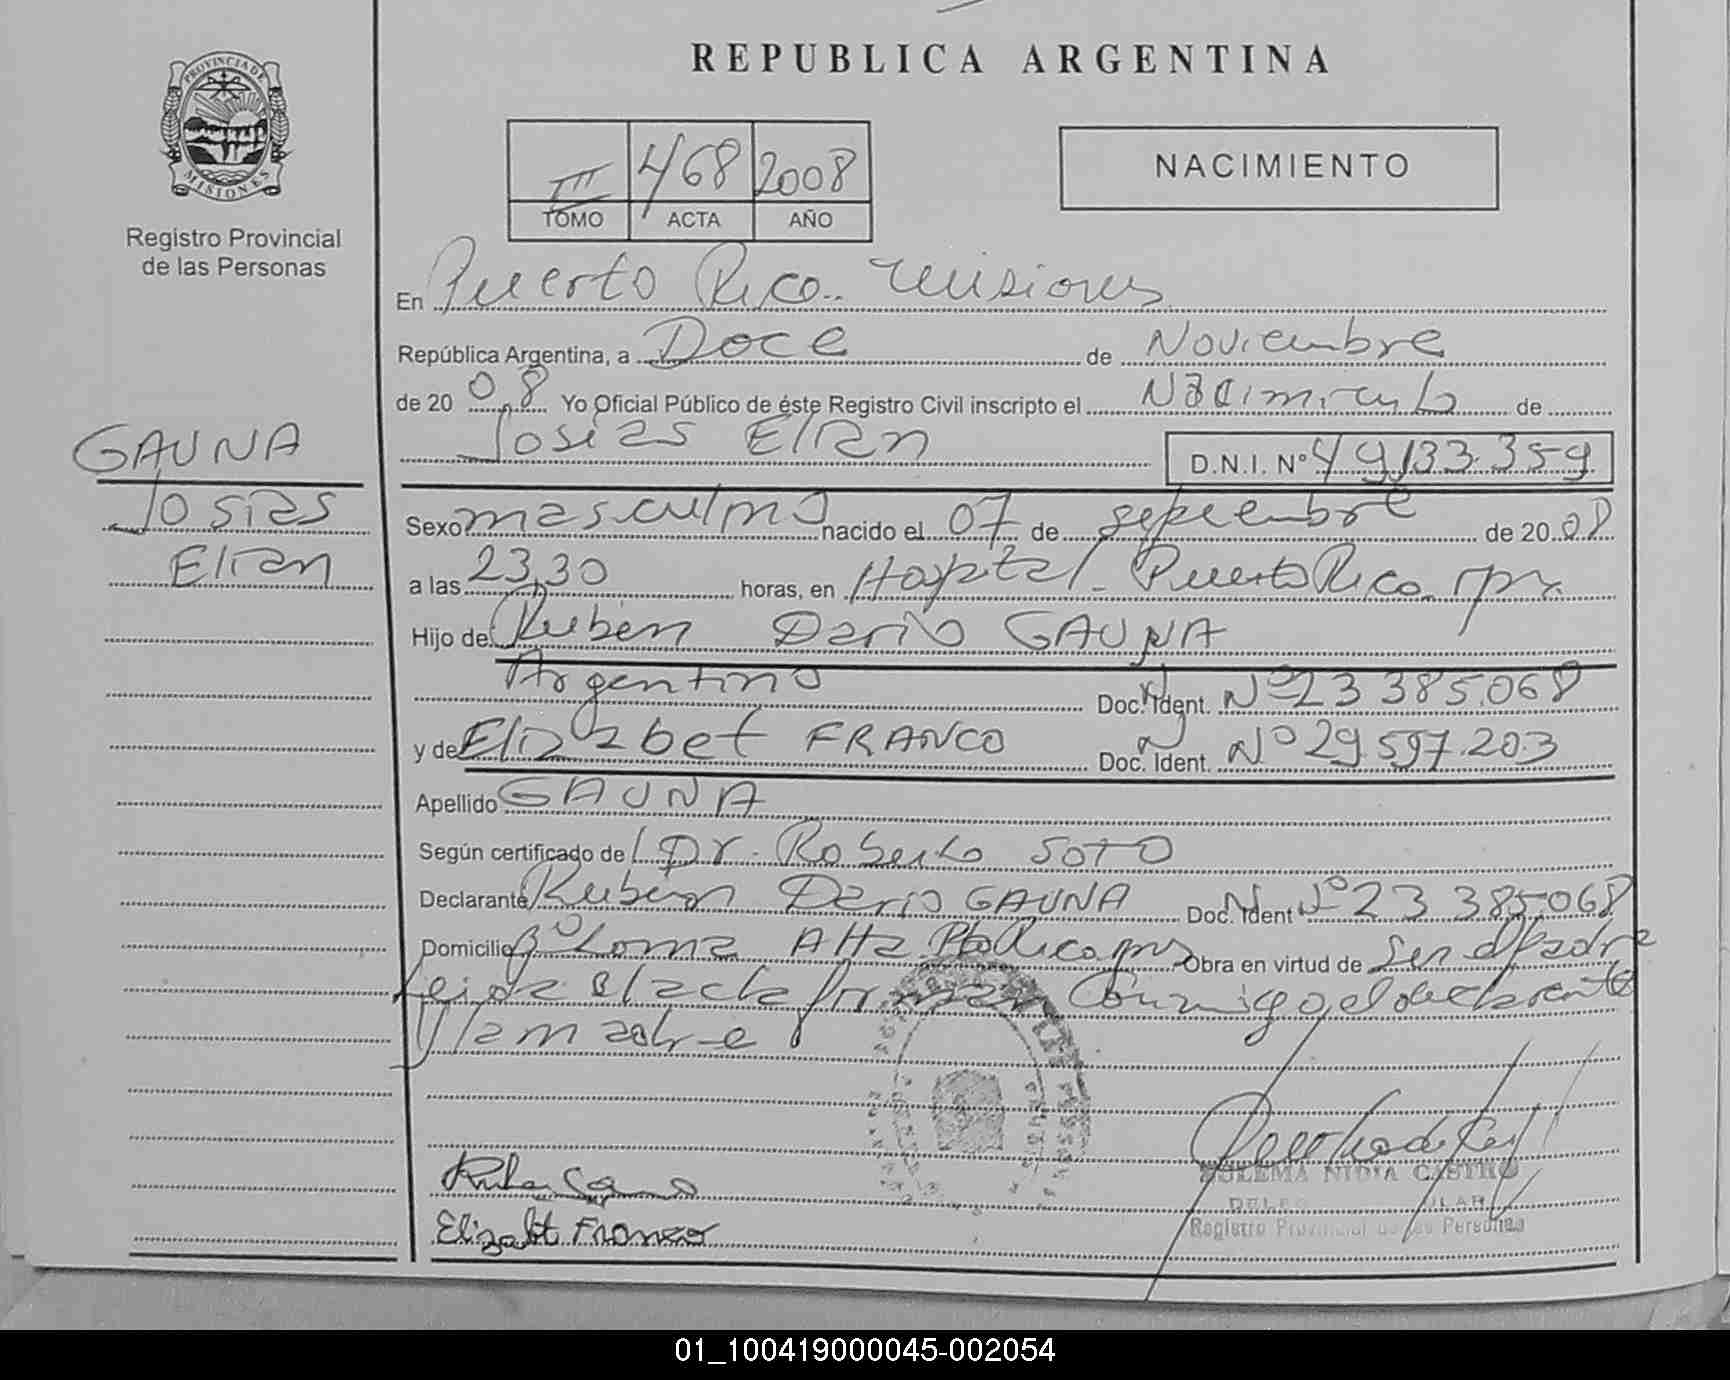 REPUBLICA ARGENTINA
PROVINCIA DE
MISIONES
Registro Provincial
de las Personas
III 468 2008
TOMO ACTA AÑO
NACIMIENTO
En Puerto Rico.. Misiones
República Argentina, a Doce de Noviembre
de 20 08 Yo Oficial Público de éste Registro Civil inscripto el Nacimiento de
Josias Elian D.N.I. N° 49.133.359
GAUNA
Josias
Elian
Sexo masculino nacido el 07 de septiembre de 20 08
a las 23,30 horas, en Hospital - Puerto Rico
Hijo de Rubén Dario GAUNA
Argentino Doc. Ident. N° 23 385.068
y de Elizabet FRANCO Doc. Ident. N° 29.597.203
Apellido GAUNA
Según certificado del Dr. Roberto SOTO
Declarante Rubén Dario GAUNA Doc. Ident N° 23 385.068
Domicilio B° Loma Alta Pto Rico Obra en virtud de ser el padre
Leida el acta firman conmigo el declarante
y la madre
Elizabet Franco
SULEMA NIDIA CASTRO
Registro Provincial de las Personas
01_100419000045-002054